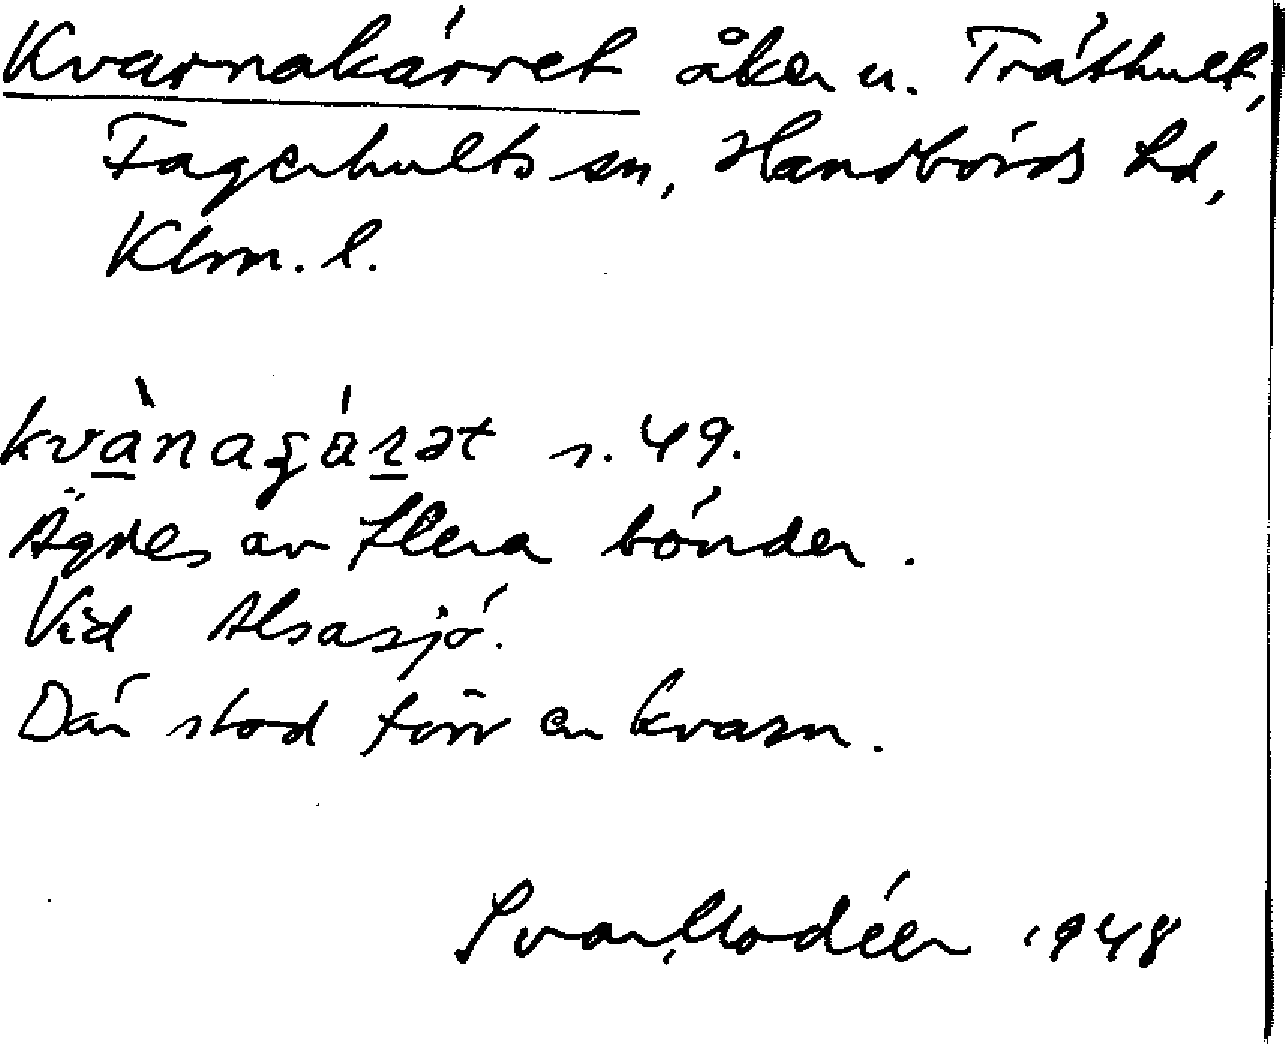 Kvarnakärret åker u. Träthult,
Fagerhults sn, Handbörds hd,
Klm. l.
kvànagáret s. 49.
Ägdes av flera bönder.
Vid Alsasjö.
Där stod förr en kvarn.
Ivar Modéer 1948